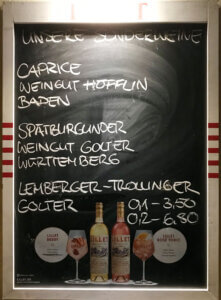 UNSERE SCHOPPENWEINE
CAPRICE
WEINGUT HÖFFLIN
BADEN
SPÄTBURGUNDER
WEINGUT GOLTER
WÜRTTEMBERG
LEMBERGER-TROLLINGER
GOLTER 0,1 - 3,50
0,2 - 6,80
LILLET
LILLET